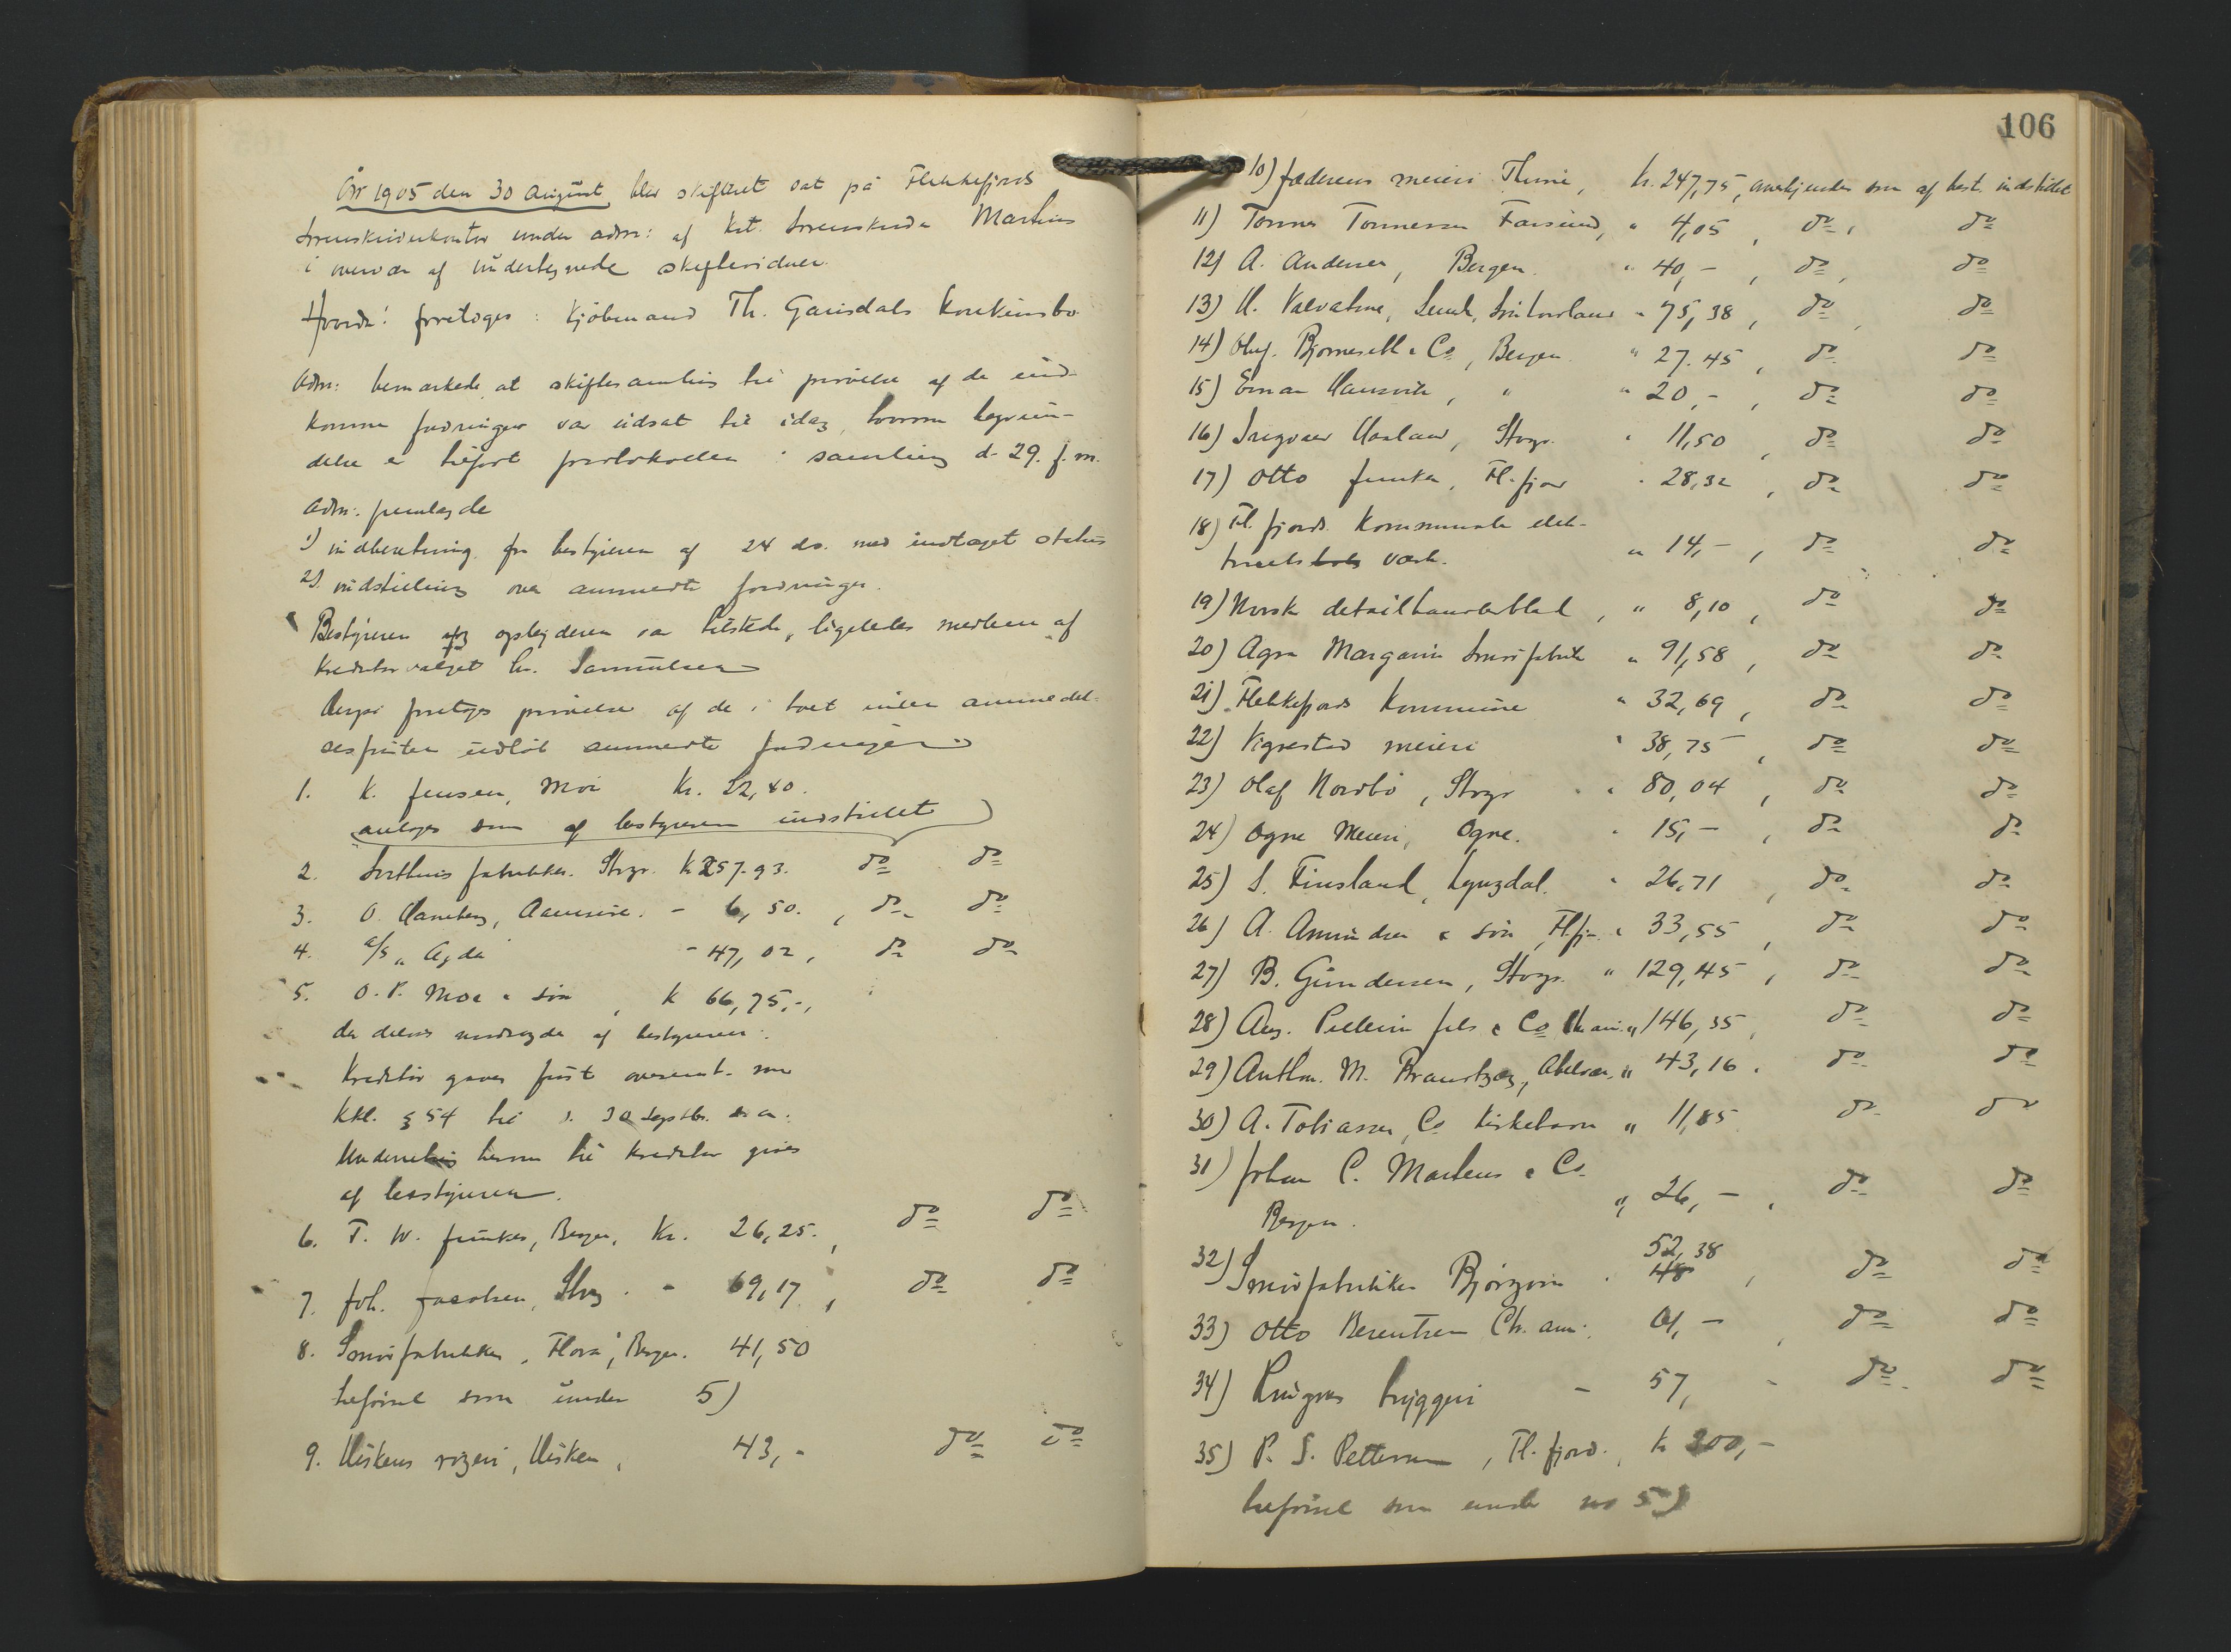 År 1905 den 30 august blev skifteret sat på Flekkefjords
sorenskriverkontor under adm: af kst. sorenskriver Martens
i overvær af undertegnede skiftevidner.
Hvorda: foretoges: kjøbmand Th. Gausdals konkursbo.
Adm: bemærkede, at skiftesamling til prøvelse af de ind-
komne fordringer var udsat til idag, hvorom begrun-
delse er tilført protokollen i samling d. 29. f.m.
Adm: fremlagde
1) indberetning fra bestyreren af 24 ds. med indtaget status
2) indstilling over anmeldte fordringer.
Bestyreren og opbyderen var tilstede, ligeledes medlem af
kreditorvalget hr. Samuelsen
Derpå foretoges prøvelse af de i boet inden anmeldel-
sesfristens udløb anmeldte fordringer
1. K. Jensen, Moi Kr. 22,40.
antoges som af bestyreren indstillet
2. fabrikker. Stvgr. Kr 257.93. do do
3. O. Haneberg, Aaensire. - 6,50., do do
4. a/s „Agda" - 47,02, do do
5. O. P. Moe & søn, k 66,75,-,
der delvis modsagdes af bestyreren.
Kreditor gaves frist overensst. med
Kkl. § 54 til d. 30 septbr. d. a.
Underretning herom til kreditor gives
af bestyreren.
6. T. W. Junker, Bergen, Kr. 26,25., do do
7. Joh. Jacobsen, Stvgr. - 69,17, do do
8. Smørfabrikken „Flora", Bergen. 41,50
tilførsel som under 5)
9. Uskens røgeri, Usken, 43,- do do
106
10) Jæderens meieri Thime, kr. 247,75, anerkjendes som af best. indstillet
11) Tønnes Tønnessen Farsund, " 4,05, do, do
12) A. Andersen, Bergen. " 40,-, do, do
13) H. Valvatne, Søndhordland " 75,38, do, do
14) Oluf. Bjørnseth & Co, Bergen " 27.45, do do
15) Einar Hansvik, " " 20,-, do do
16) Ingvar Haaland, Stvgr. " 11,50, do do
17) Otto Junker, Fl.fjord " 28,32, do do
18) Fl.fjords kommunale elek-
tricitets værk. " 14,-, do do
19) Norsk detailhandlerblad, " 8,10, do do
20) Agra Margarin Smørfabrik " 91,58, do do
21) Flekkefjords Kommune " 32,69, do do
22) Vigrestad meieri " 38,75, do do
23) Olaf Nordbø, Stvgr " 80,04, do do
24) Ogne Meieri, Ogne. " 15,-, do do
25) S. Finsland, Lyngdal. " 26,71, do do
26) A. Amundsen & søn, Fl.fj. " 33,55, do do
27) B. Gundersen, Stvgr. " 129,45, do do
28) Aug. Pellerin fils & Co Kr.ania " 146,35, do do
29) Anthon. M. Brandtzæg, Abelvær, " 43,16. do do
30) A. Tobiassen, Co Kirkehavn " 11,85 do do
31) Johan C. Martens & Co.
Bergen. " 26,-, do do
32) Smørfabrikken Bjørgvin " 52,38, do do
33) Otto Berentsen Ch.ania. 01,-, do do
34) bryggeri - 57,- do do
35) P. S. Pettersen, Fl.fjord. k 300,-
tilførsel som under no 5)